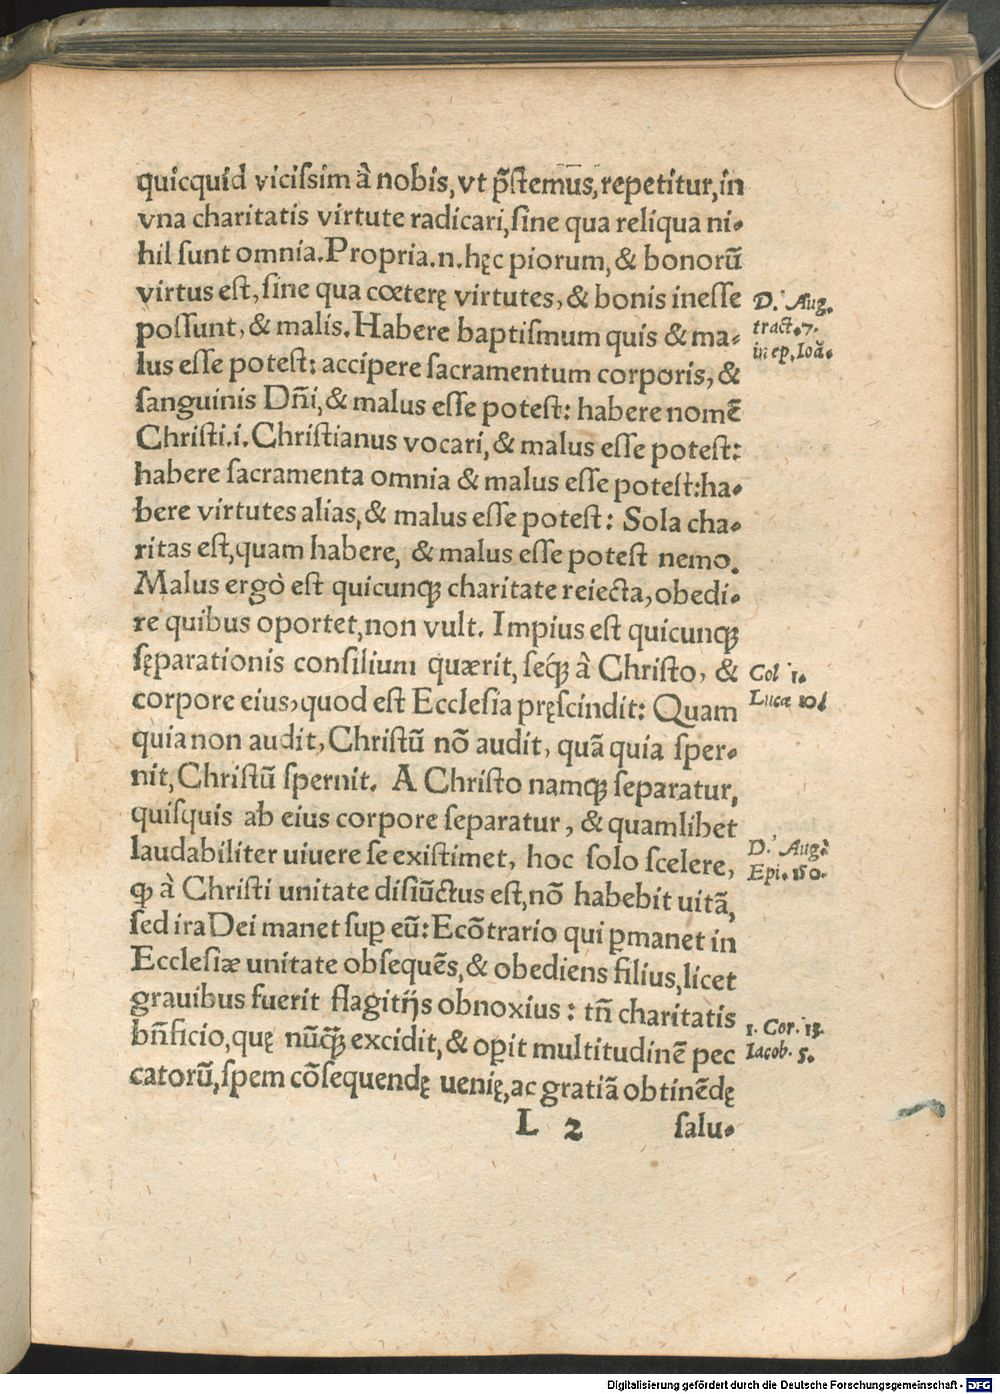 quicquid viciſsim à nobis, vt p̃ſtemus, repetitur, in
vna charitatis virtute radicari, ſine qua reliqua ni-
hil ſunt omnia. Propria.n.hęc piorum, & bonorũ
virtus eſt, ſine qua cœterę virtutes, & bonis ineſſe
poſſunt, & malis. Habere baptiſmum quis & ma-
lus eſſe poteſt: accipere ſacramentum corporis, &
ſanguinis Dñi, & malus eſſe poteſt: habere nomẽ
Chriſti.i. Chriſtianus vocari, & malus eſſe poteſt:
habere ſacramenta omnia & malus eſſe poteſt: ha-
bere virtutes alias, & malus eſſe poteſt: Sola cha-
ritas eſt, quam habere, & malus eſſe poteſt nemo.
Malus ergò eſt quicunq; charitate reiecta, obedi-
re quibus oportet, non vult. Impius eſt quicunq;
ſęparationis conſilium quærit, ſeq́; à Chriſto, &
corpore eius, quod eſt Eccleſia pręſcindit: Quam
quia non audit, Chriſtũ nõ audit, quã quia ſper-
nit, Chriſtũ ſpernit. A Chriſto namq; ſeparatur,
quiſquis ab eius corpore ſeparatur, & quamlibet
laudabiliter uiuere ſe exiſtimet, hoc ſolo ſcelere,
ꝙ à Chriſti unitate diſiũctus eſt, nõ habebit uitã,
ſed ira Dei manet ſuꝑ eũ: Ecõtrario qui ꝑmanet in
Eccleſiæ unitate obſequẽs, & obediens filius, licet
grauibus fuerit flagitijs obnoxius: tñ charitatis
bñficio, quę nũꝗ̃ excidit, & oꝑit multitudinẽ pec
catorũ, ſpem cõſequendę uenię, ac gratiã obtinẽdę
L 2 ſalu-
D. Aug.
tract. 7.
in ep. Ioã.
Col 1.
Lucæ 10
D. Aug.
Epi. 150.
1. Cor. 13.
Iacob. 5.
Digitalisierung gefördert durch die Deutsche Forschungsgemeinschaft - DFG